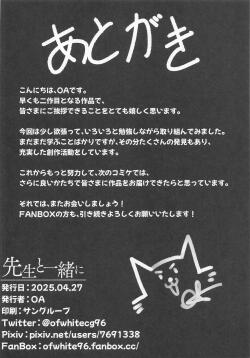 あとがき
こんにちは、OAです。
早くも二作目となる作品で、
皆さまにご挨拶できることをとても嬉しく思います。
今回は少し欲張って、いろいろと勉強しながら取り組んでみました。
まだまだ学ぶことばかりですが、その分たくさんの発見もあり、
充実した創作活動をしています。
これからもっと努力して、次のコミケでは、
さらに良いかたちで皆さまに作品をお届けできたらと思っています。
それでは、またお会いしましょう！
FANBOXの方も、引き続きよろしくお願いします！
先生と一緒に
発行日：2025.04.27
発行者：OA
印刷：サングループ
Twitter：@ofwhitecg96
Pixiv：pixiv.net/users/7691338
FanBox：ofwhite96.fanbox.cc/